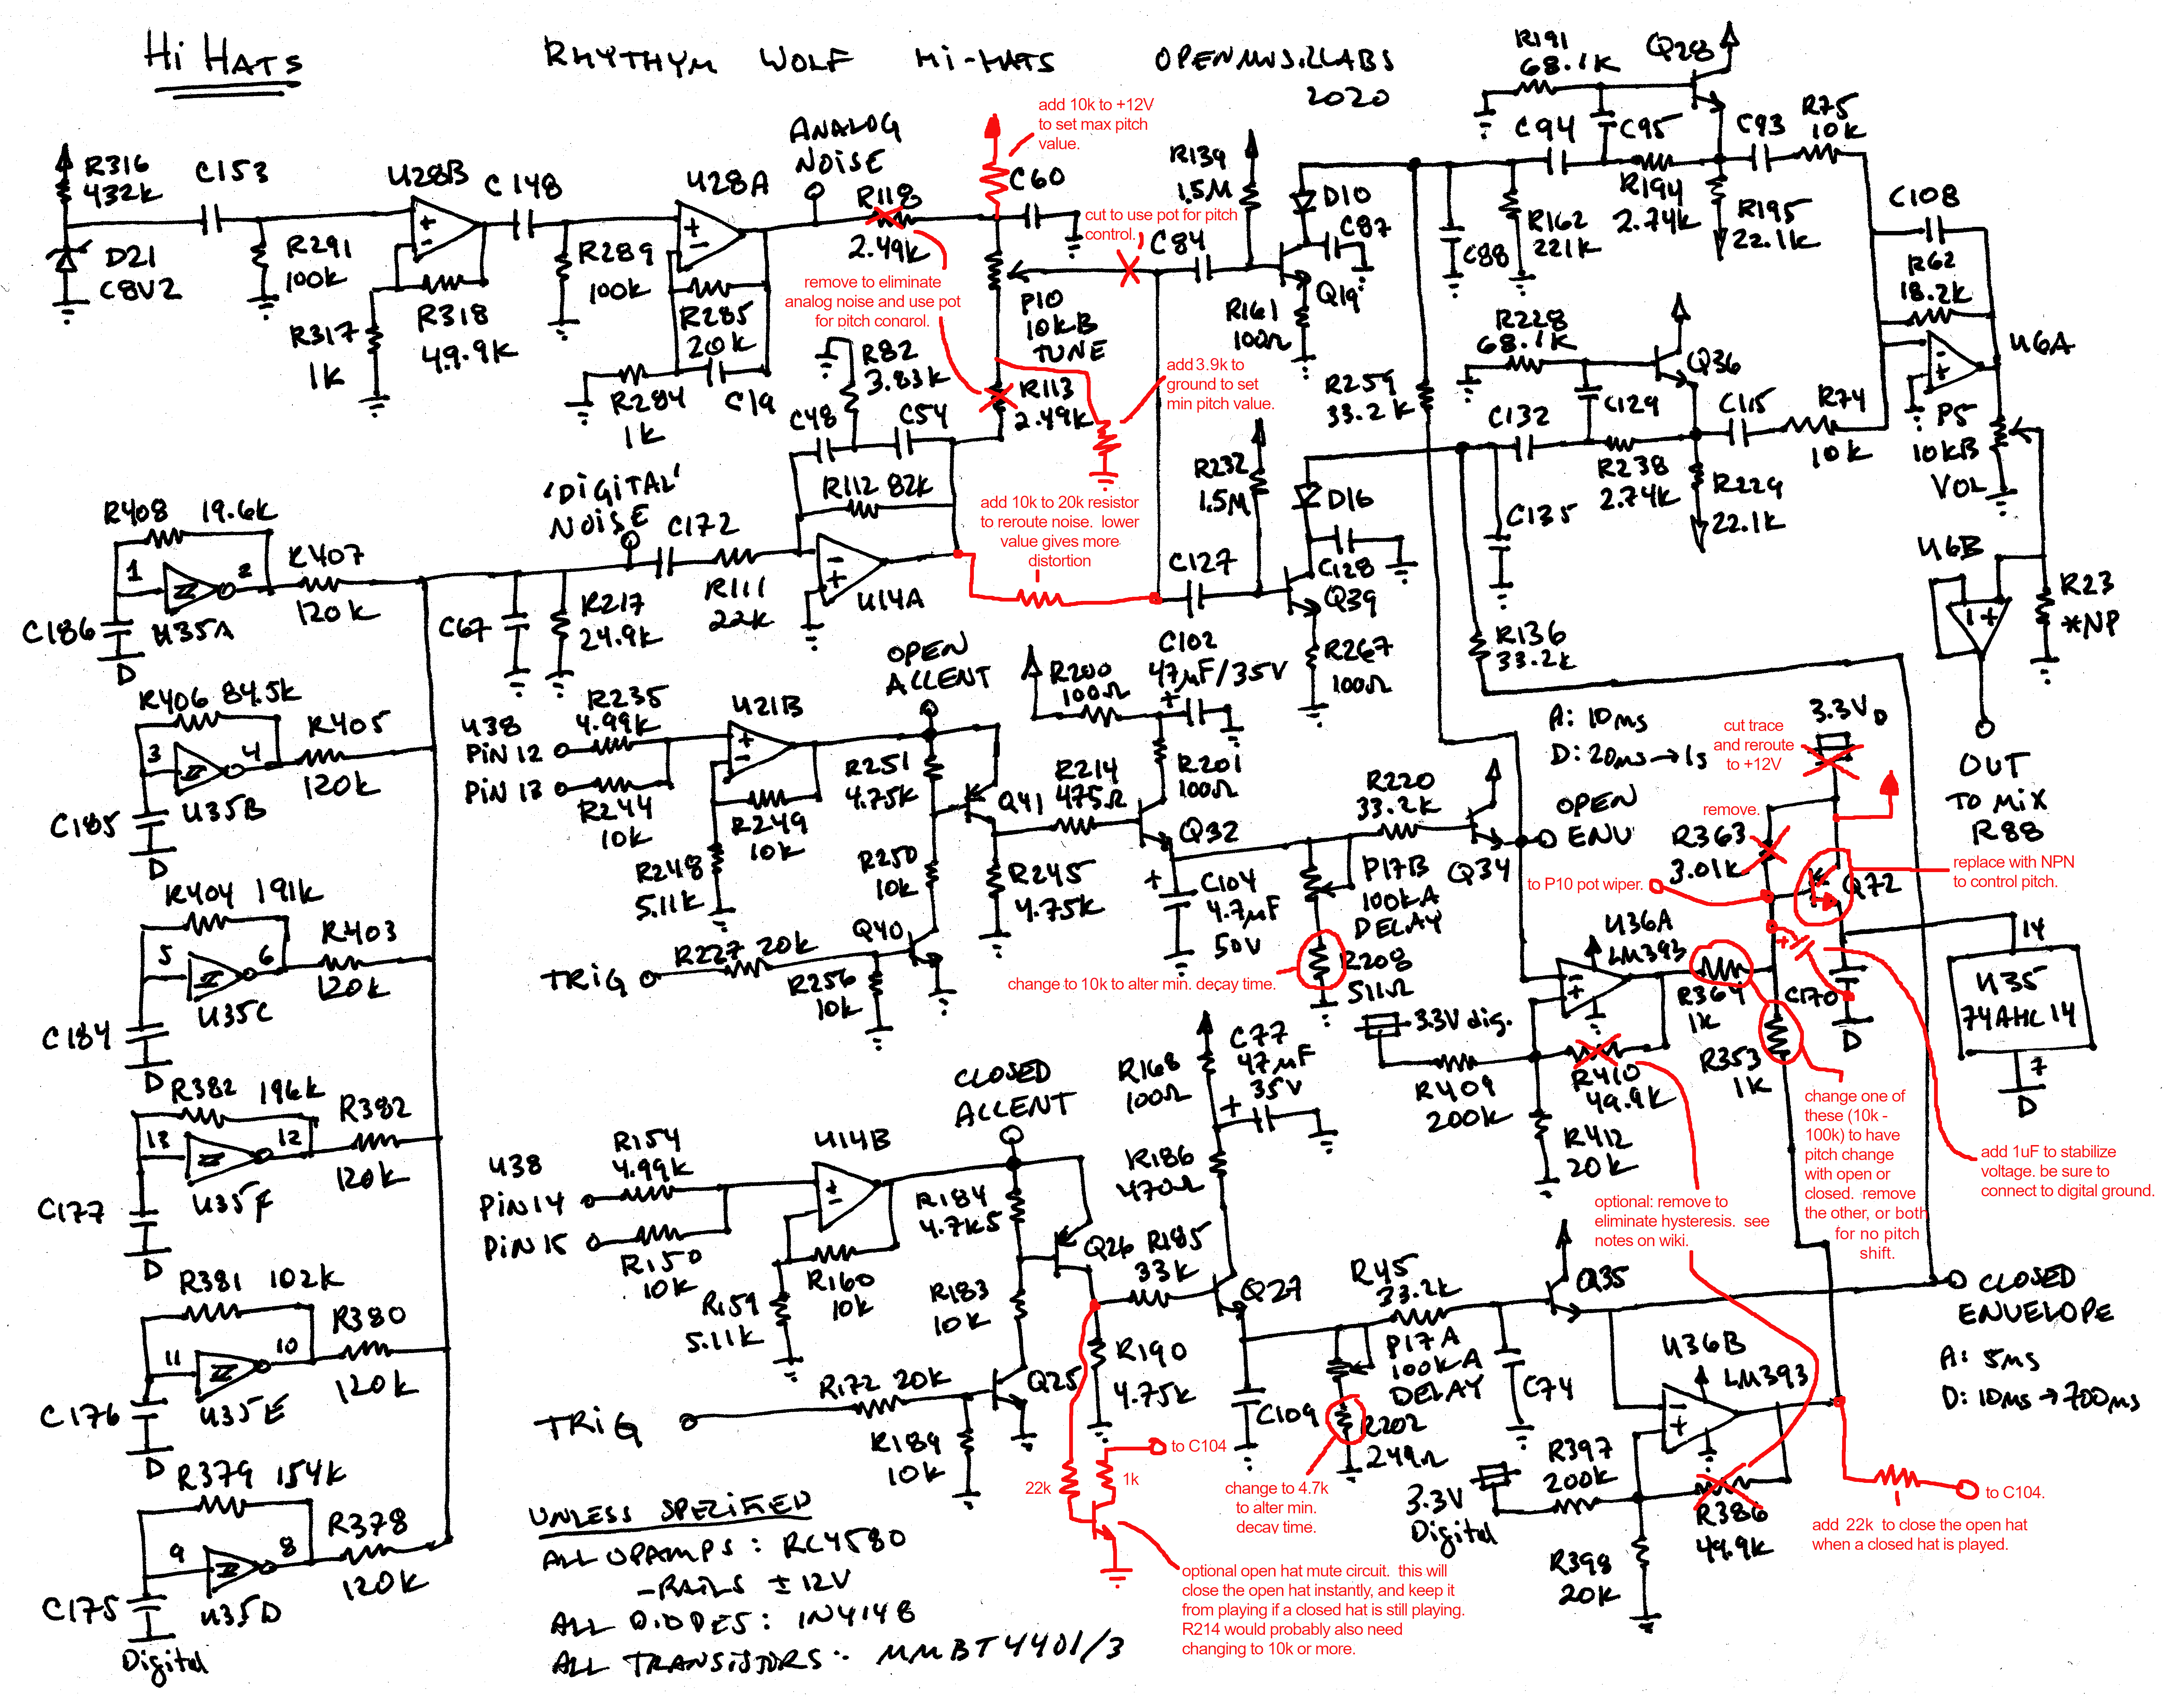 Hi HATS
RHYTHYM WOLF Hi-HATS OPENMUSICLABS
2020
R316
432K
C153
D21
C8V2
R291
100K
U28B
R317
1K
R318
49.9K
C148
R289
100K
U28A
R285
20K
R284
1K
C19
ANALOG
NOISE
R118
2.49K
add 10k to +12V
to set max pitch
value.
C60
cut to use pot for pitch
control.
remove to eliminate
analog noise and use pot
for pitch congrol.
P10
10KB
TUNE
R82
3.83K
C48
C54
R113
2.49K
R112 82K
add 3.9k to
ground to set
min pitch value.
C84
R139
1.5M
D10
C87
Q19
R161
100Ω
C88
R162
221K
C94
C95
R191
68.1K
Q28
R194
2.74K
R195
22.1K
C93
R75
10K
C108
R62
18.2K
U6A
P5
10KB
VOL
R228
68.1K
Q36
C132
C129
R238
2.74K
R229
22.1K
C115
R74
10K
R259
33.2K
R232
1.5M
D16
C128
Q39
C127
R267
100Ω
C135
R136
33.2K
U6B
R23
*NP
OUT
TO MIX
R88
'DIGITAL'
NOISE
C172
R111
22K
U14A
C67
R217
24.9K
add 10k to 20k resistor
to reroute noise. lower
value gives more
distortion
R408 19.6K
1
2
U35A
C186
D
R407
120K
R406 84.5K
3
4
U35B
C185
D
R405
120K
R404 191K
5
6
U35C
C184
D
R403
120K
R382 196K
13
12
U35F
C177
D
R382
120K
R381 102K
11
10
U35E
C176
D
R380
120K
R379 154K
9
8
U35D
C175
Digital
R378
120K
U38
PiN 12
PiN 13
R235
4.99K
R244
10K
U21B
R249
10K
R248
5.11K
OPEN
ACCENT
R251
4.75K
R250
10K
Q41
Q40
TRiG
R227 20K
R256
10K
R245
4.75K
R214
475Ω
R200
100Ω
C102
47µF/35V
R201
100Ω
Q32
C104
4.7µF
50V
P17B
100KA
DELAY
R208
511Ω
change to 10k to alter min. decay time.
R220
33.2K
Q34
A: 10ms
D: 20ms→1s
OPEN
ENV
cut trace
and reroute
to +12V
3.3VD
remove.
R363
3.01K
to P10 pot wiper.
Q72
replace with NPN
to control pitch.
U36A
LM393
R364
1K
C170
D
14
U35
74AHC14
7
D
3.3V dig.
R409
200K
R410
49.9K
R412
20K
R353
1K
change one of
these (10k -
100k) to have
pitch change
with open or
closed. remove
the other, or both
for no pitch
shift.
add 1uF to stabilize
voltage. be sure to
connect to digital ground.
optional: remove to
eliminate hysteresis. see
notes on wiki.
U38
PiN 14
PiN 15
R154
4.99K
R150
10K
U14B
R160
10K
R159
5.11K
CLOSED
ACCENT
R184
4.7K5
R183
10K
Q26
Q25
TRiG
R172 20K
R189
10K
R190
4.75K
R185
33K
R168
100Ω
C77
47µF
35V
R186
470Ω
Q27
C109
P17A
100KA
DELAY
R202
249Ω
change to 4.7k
to alter min.
decay time.
R45
33.2K
C74
Q35
CLOSED
ENVELOPE
A: 5ms
D: 10ms→700ms
U36B
LM393
3.3V
Digital
R397
200K
R386
49.9K
R398
20K
to C104.
add 22k to close the open hat
when a closed hat is played.
22k
1k
to C104
optional open hat mute circuit. this will
close the open hat instantly, and keep it
from playing if a closed hat is still playing.
R214 would probably also need
changing to 10k or more.
UNLESS SPECIFIED
ALL OPAMPS: RC4580
-RAILS ±12V
ALL DIODES: 1N4148
ALL TRANSISTORS: MMBT4401/3